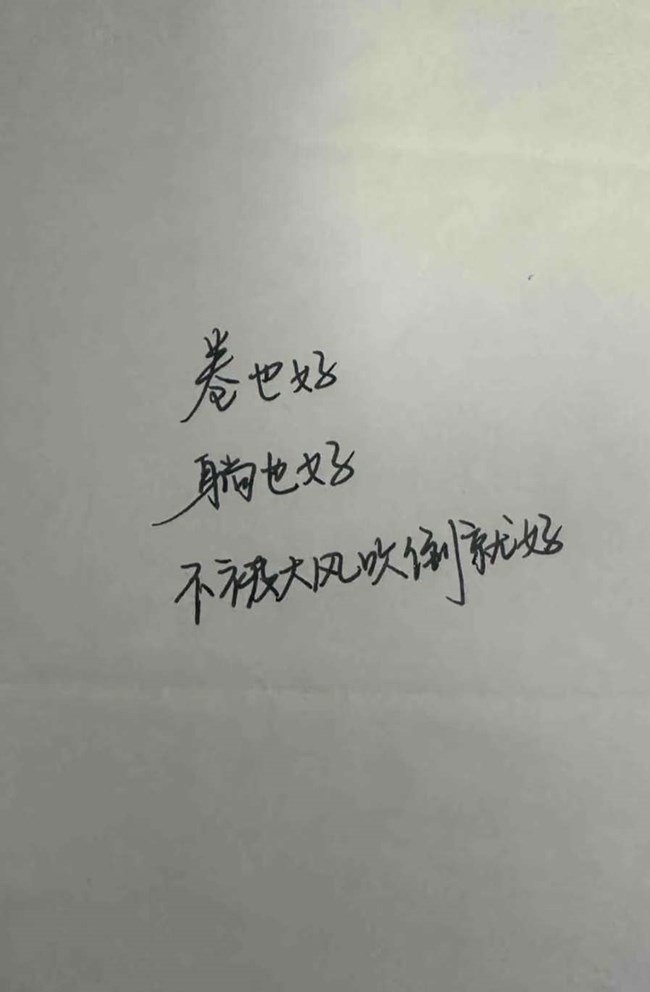 卷也好
躺也好
不被大风吹倒就好